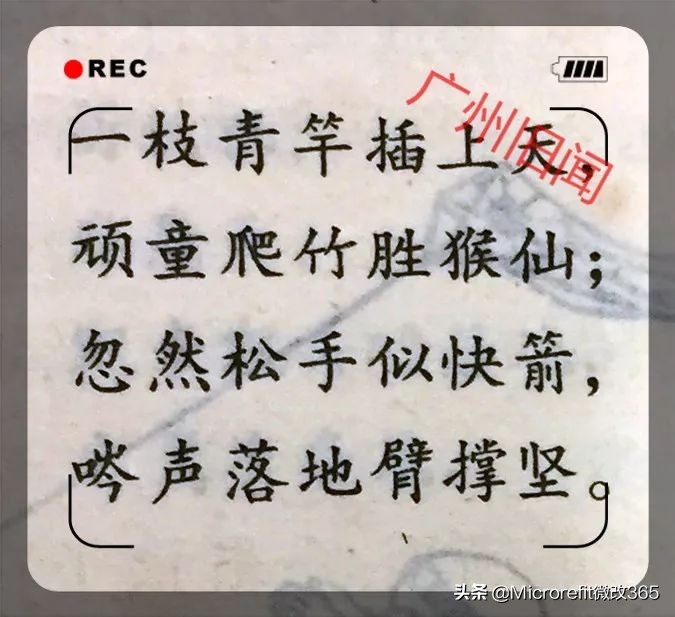 REC
广州旧闻
一枝青竿插上天,
顽童爬竹胜猴仙;
忽然松手似快箭,
唥声落地臂撑坚。
头条 @Microrefit微改365